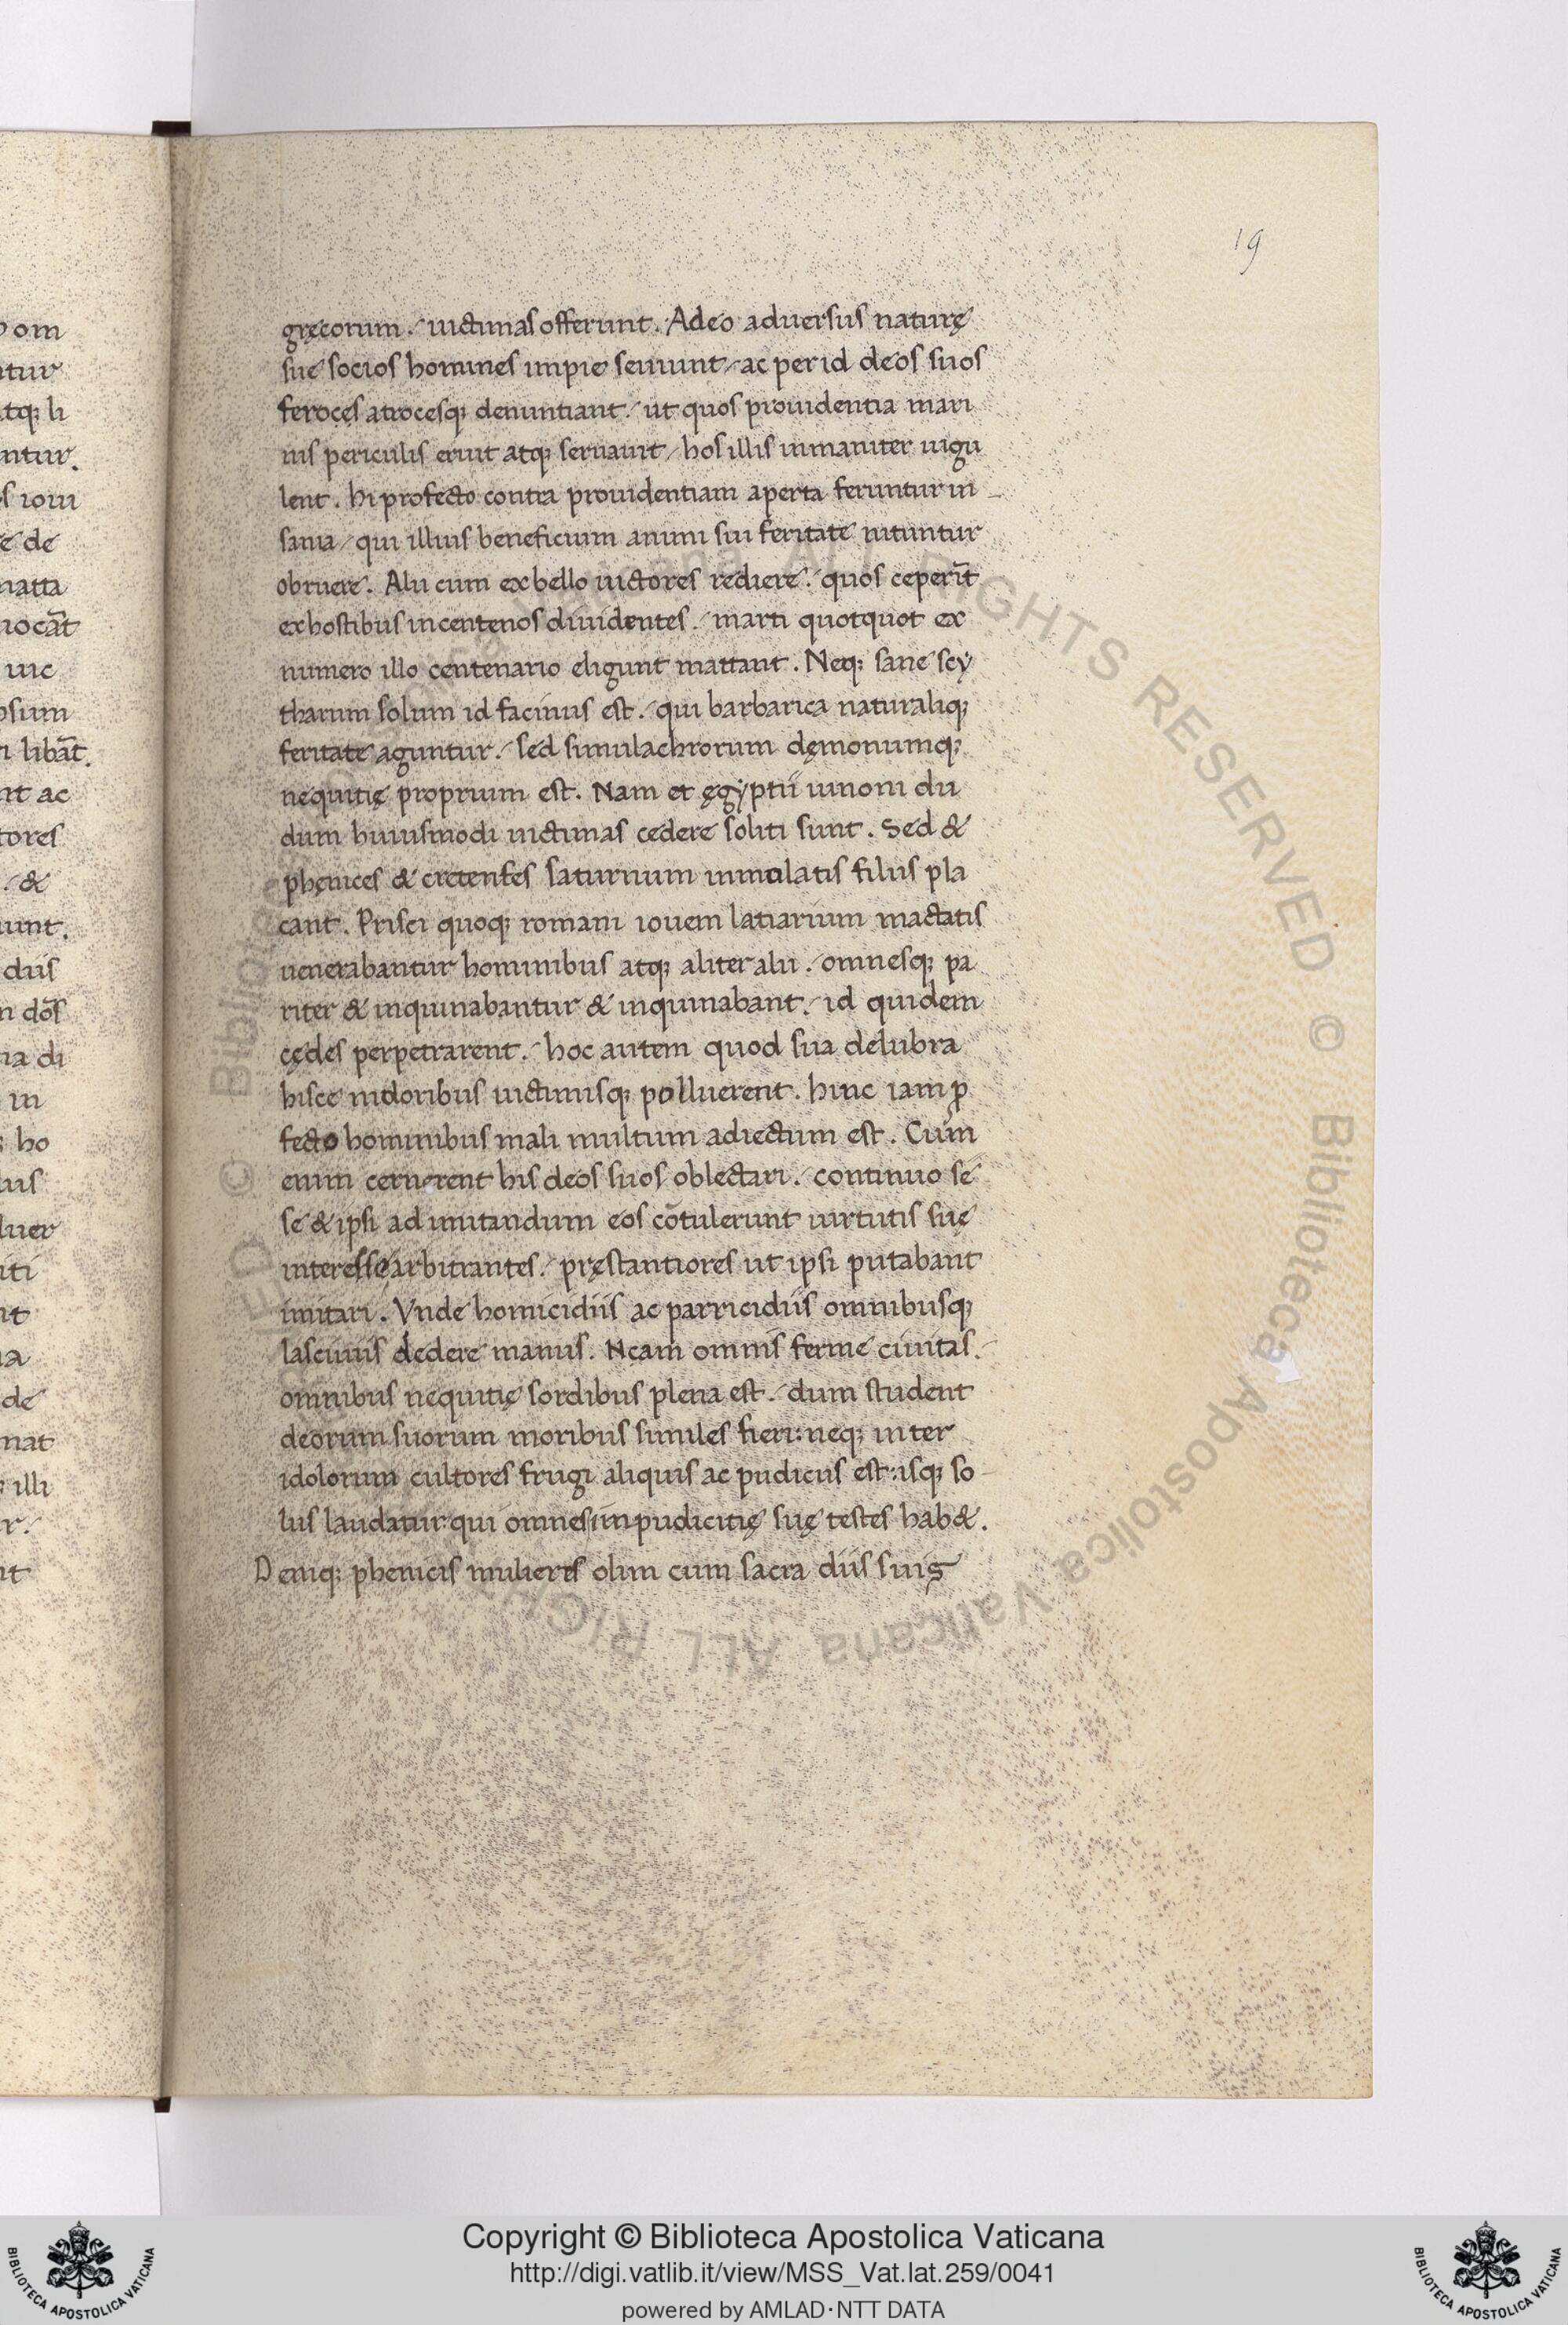 19
gręcorum. uictimas offerunt. Adeo aduersus naturę
sue socios homines impie seuiunt, ac per id deos suos
feroces atrocesq; denuntiant. ut quos prouidentia mari
nis periculis eruit atq; seruauit, hos illis inmaniter uigu
lent. hi profecto contra prouidentiam aperta feruntur in
sania, qui illius beneficium animi sui feritate nituntur
obruere. Alii cum ex bello uictores rediere. quos ceperīt
ex hostibus in centenos diuidentes. marti quotquot ex
numero illo centenario eligunt mattant. Neq; sane scy
tharum solum id facinus est. qui barbarica naturaliq;
feritate aguntur. sed simulachrorum dęmonumq;
nequitię proprium est. Nam et ęgyptii iunoni du
dum huiusmodi uictimas cedere soliti sunt. Sed &
phęnices & cretenses saturnum inmolatis filiis pla
cant. Prisci quoq; romani iouem latiarium mactatis
uenerabantur hominibus atq; aliter alii. omnesq; pa
riter & inquinabantur & inquinabant. id quidem
cędes perpetrarent. hoc autem quod sua delubra
hisce nidoribus uictimisq; polluerent. hinc iam ꝓ
fecto hominibus mali multum adiectum est. Cum
enim cernerent his deos suos oblectari. continuo se
se & ipsi ad imitandum eos cōtulerunt uirtutis suę
interesse arbitrantes. pręstantiores ut ipsi putabant
imitari. Vnde homicidiis ac parricidiis omnibusq;
lasciuiis dedere manus. Neam omnis ferme ciuitas.
omnibus nequitię sordibus plena est. dum student
deorum suorum moribus similes fieri: neq; inter
idolorum cultores frugi aliquis ac pudicus est: isq; so
lus laudatur: qui omnes inpudicitię suę testes hab&.
Deniq; phenicis mulieres olim cum sacra diis suis
om
tur
tq; li
ntur.
s ioui
e de
matta
uocāt
uic
psum
i libāt.
nt ac
tores
. &
unt.
diis
n dōs
ia di
in
ho
uis
luer
iti
nt
a
de
nat
illi
r.
nt
© Biblioteca Apostolica Vaticana ALL RIGHTS RESERVED © Biblioteca Apostolica Vaticana ALL RIGHTS RESERVED
BIBLIOTECA APOSTOLICA VATICANA
Copyright © Biblioteca Apostolica Vaticana
http://digi.vatlib.it/view/MSS_Vat.lat.259/0041
powered by AMLAD·NTT DATA
BIBLIOTECA APOSTOLICA VATICANA